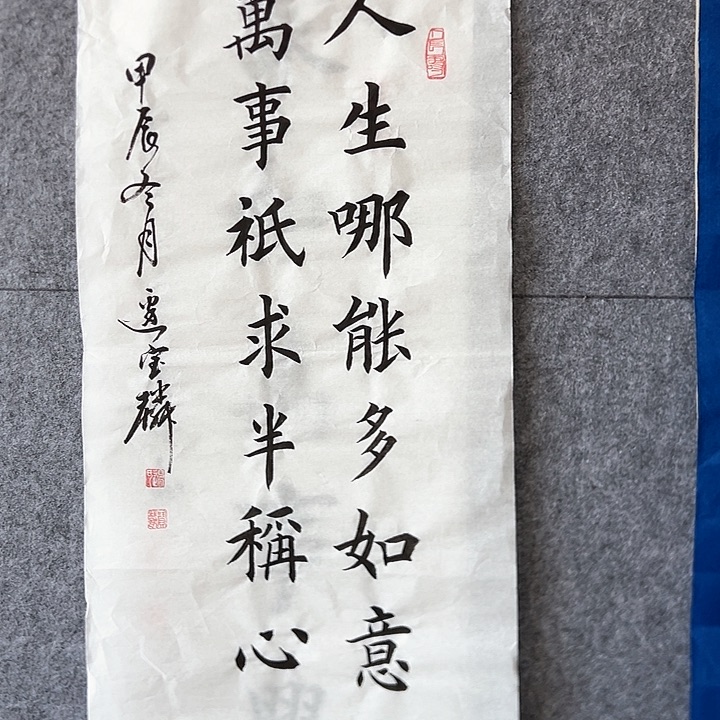 人生哪能多如意
萬事祗求半稱心
甲辰冬月邊宝麟